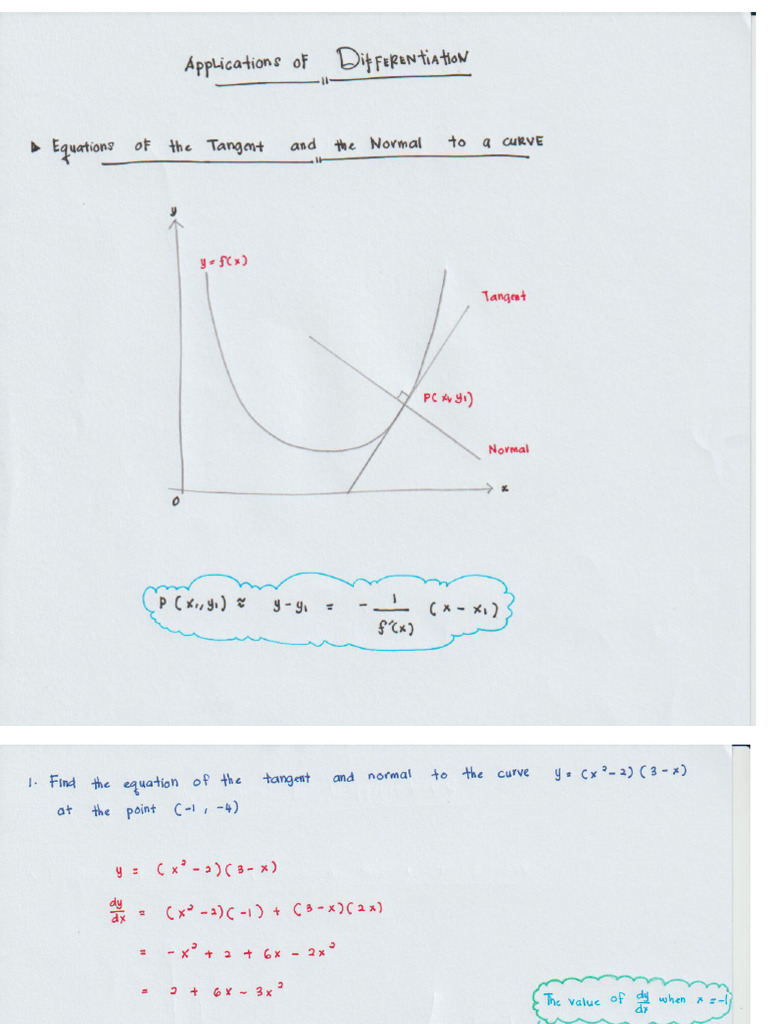 Applications of Differentiation
Equations of the Tangent and the Normal to a curve
y
y = f(x)
Tangent
P(x₁, y₁)
Normal
x
0
P(x₁, y₁) ≈ y - y₁ = - 1/f'(x) (x - x₁)
1. Find the equation of the tangent and normal to the curve y = (x² - 2)(3 - x)
at the point (-1, -4)
y = (x² - 2)(3 - x)
dy/dx = (x² - 2)(-1) + (3 - x)(2x)
= - x² + 2 + 6x - 2x²
= 2 + 6x - 3x²
The value of dy/dx when x = -1